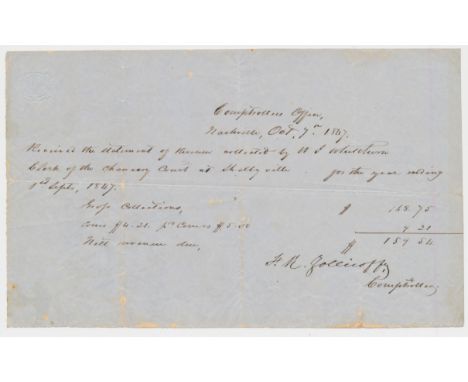 Comptrollers Office,
Nashville, Oct. 7th 1847.
Received the Statement of Revenue collected by W J Whitthorn
Clerk of the Chancery Court at Shelbyville for the year ending
1st Septr, 1847.
Gross Collections, $ 168.75
Coms $4.21 pr Comrs $5.00 9 21
Nett revenue due, $ 159 54
F. K. Zollicoffer,
Comptroller